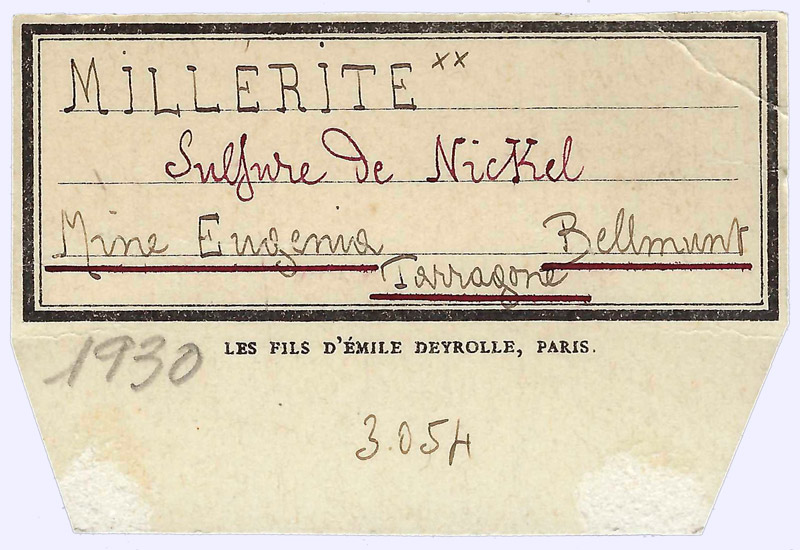 MILLÉRITE xx
Sulfure de Nickel
Mine Eugenia Bellmunt
Tarragone
1930 LES FILS D'ÉMILE DEYROLLE, PARIS.
3.054